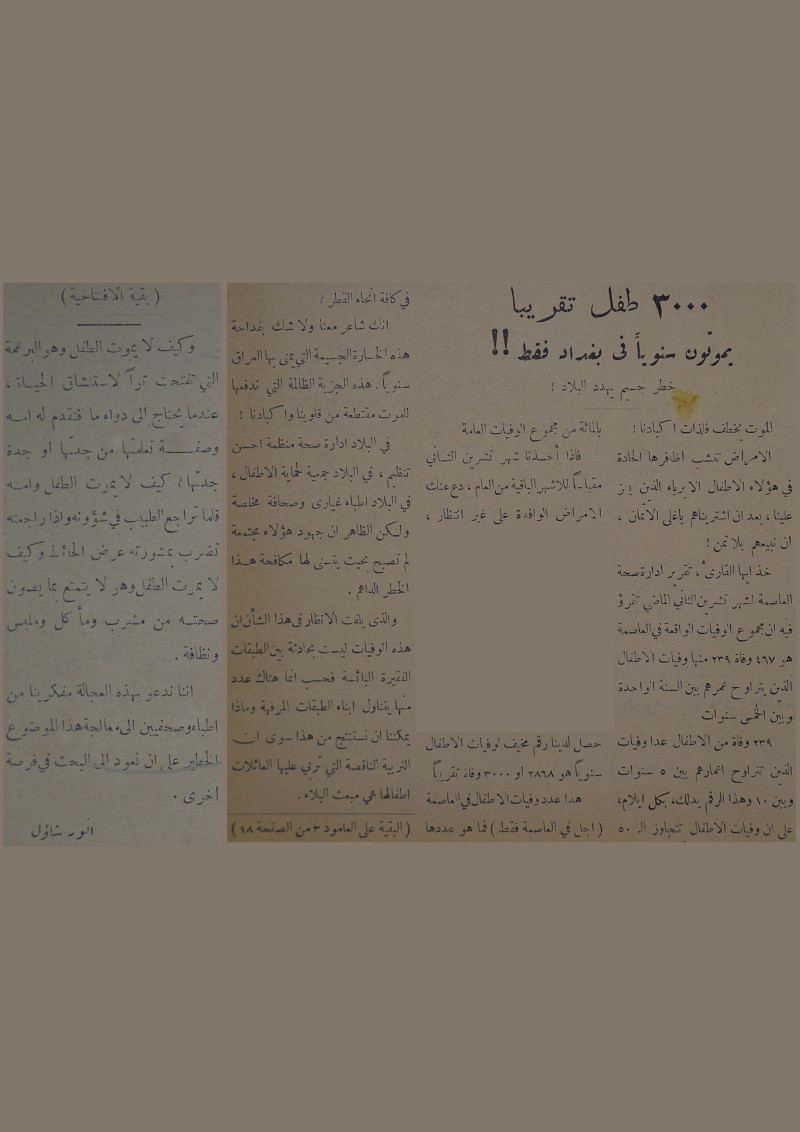 ٣٠٠٠ طفل تقريبا
يموتون سنوياً في بغداد فقط !!
خطر جسيم يهدد البلاد !
الموت يخطف فلذات اكبادنا !
الامراض تنشب اظافرها الحادة
في هؤلاء الاطفال الابرياء الذين
علينا ، بعد ان اشتريناهم باغلى الأثمان ،
ان نبيعهم بلا ثمن !
خذ ايها القارئ ، تقرير ادارة صحة
العاصمة لشهر تشرين الثاني الماضي تقرؤ
فيه ان مجموع الوفيات الواقعة في العاصمة
هو ٤٦٧ وفاة ٢٣٩ منها وفيات الاطفال
الذين يتراوح عمرهم بين السنة الواحدة
وبين الخمس سنوات
٢٣٩ وفاة من الاطفال عدا وفيات
الذين تتراوح اعمارهم بين ٥ سنوات
وبين ١٠ وهذا الرقم يدلك، بكل ايلام،
على ان وفيات الاطفال تتجاوز الـ ٥٠
بالمائة من مجموع الوفيات العامة
فاذا أخذنا شهر تشرين الثاني
مقياساً للاشهر الباقية من العام ، دع عنك
الامراض الوافدة على غير انتظار ،
حصل لدينا رقم مخيف لوفيات الاطفال
سنوياً هو ٢٨٦٨ او ٣٠٠٠ وفاة تقريباً
هذا عدد وفيات الاطفال في العاصمة
( اجل في العاصمة فقط ) فما هو عددها
في كافة انحاء القطر ؟
انك شاعر معنا ولا شك بفداحة
هذه الخسارة الجسيمة التي يمنى بها العراق
سنوياً . هذه الجزية الظالمة التي ندفعها
للموت مقتطعة من قلوبنا واكبادنا !
في البلاد ادارة صحة منظمة احسن
تنظيم ، في البلاد جمعية لحماية الاطفال ،
في البلاد اطباء غيارى وصحافة مخلصة
ولكن الظاهر ان جهود هؤلاء مجتمعة
لم تصبح بحيث يتسنى لها مكافحة هذا
الخطر الداهم .
والذي يلفت الانظار في هذا الشأن ان
هذه الوفيات ليست بحادثة بين الطبقات
الفقيرة البائسة فحسب انما هناك عدد
منها يتناول ابناء الطبقات المرفهة وماذا
يمكننا ان نستنتج من هذا سوى ان
التربية الناقصة التي تربي عليها العائلات
اطفالها هي مبعث البلاء .
( البقية على العامود ٣ من الصفحة ١٨ )
( بقية الافتتاحية )
وكيف لا يموت الطفل وهو البرعمة
التي تفتحت تواً لاستنشاق الحياة ،
عندما يحتاج الى دواء ما فتقدم له امه
وصفة تعلمتها من جدتها او جدة
جدتها ؟ كيف لا يموت الطفل وامه
قلما تراجع الطبيب في شؤونه واذا راجعته
تضرب بمشورته عرض الحائط وكيف
لا يموت الطفل وهو لا يتمتع بما يصون
صحته من مشرب ومأكل وملبس
ونظافة .
اننا ندعو بهذه العجالة مفكرينا من
اطباء وصحفيين الى معالجة هذا الموضوع
الخطير على ان نعود الى البحث في فرصة
اخرى .
انور شاؤل